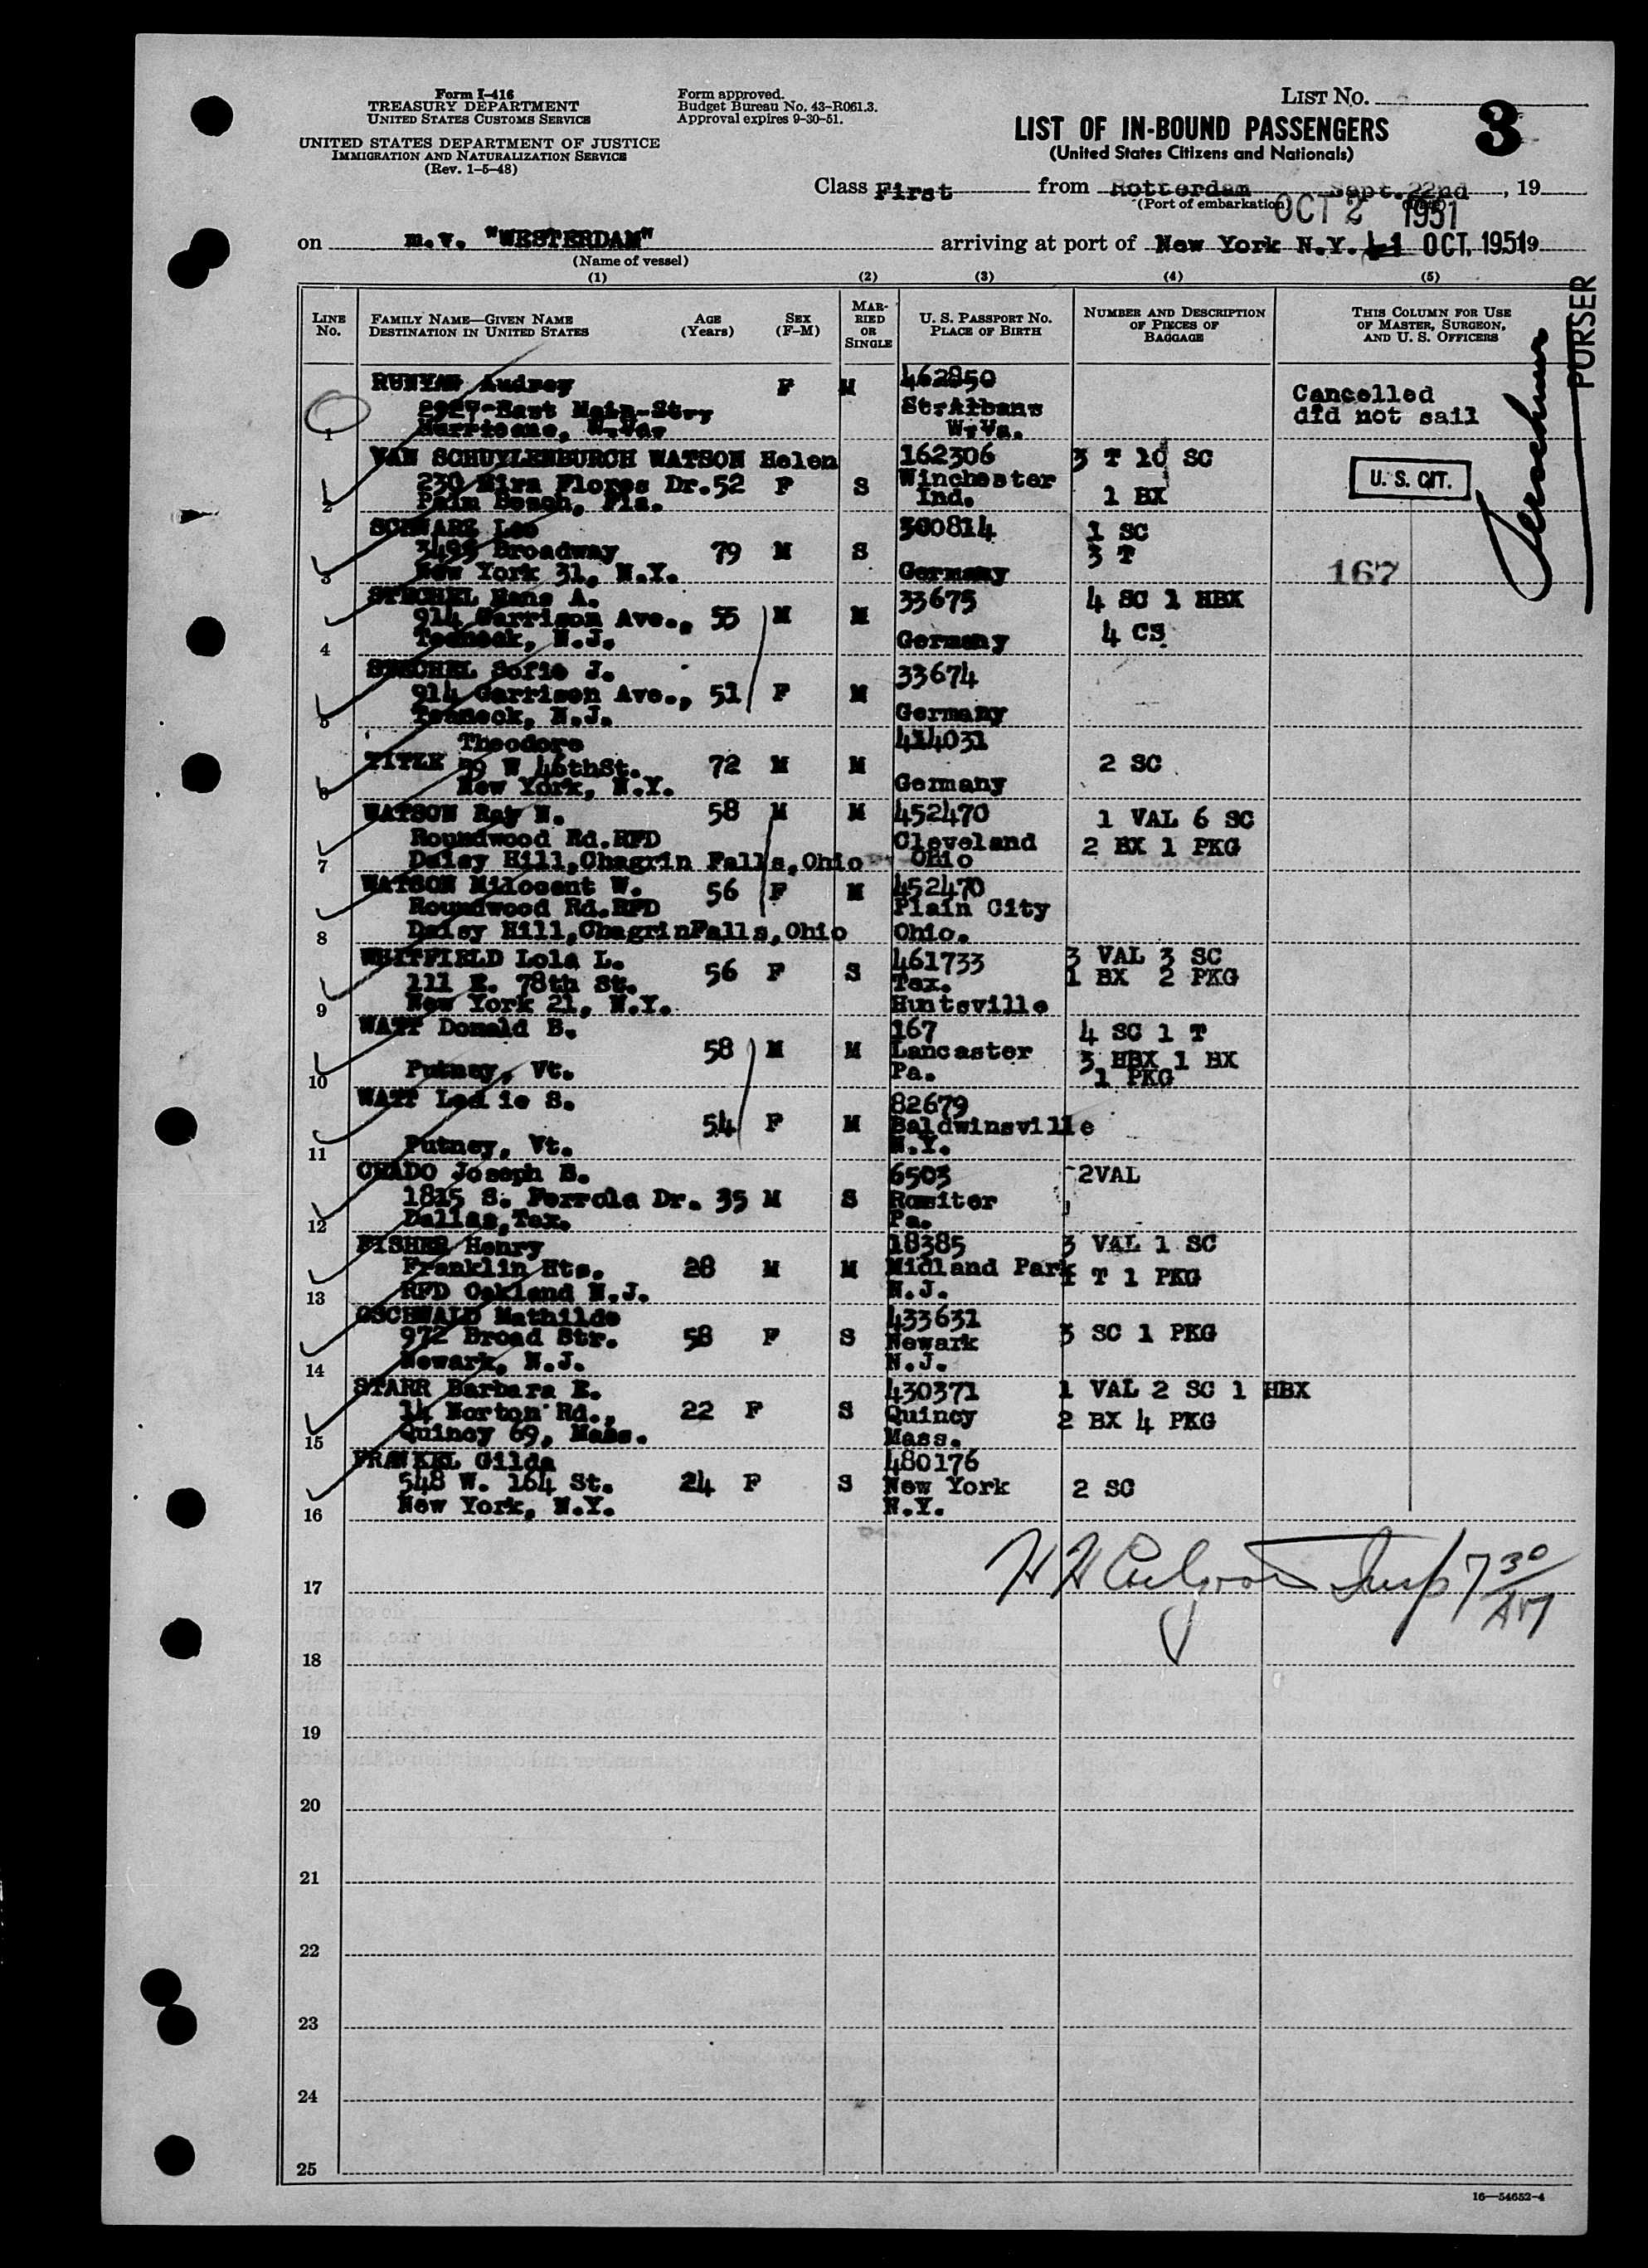 Form I-416
TREASURY DEPARTMENT
UNITED STATES CUSTOMS SERVICE
UNITED STATES DEPARTMENT OF JUSTICE
IMMIGRATION AND NATURALIZATION SERVICE
(Rev. 1-5-48)
Form approved.
Budget Bureau No. 43-R061.3.
Approval expires 9-30-51.
LIST NO.
3
LIST OF IN-BOUND PASSENGERS
(United States Citizens and Nationals)
Class First from Rotterdam Sept. 22nd, 19
(Port of embarkation)
OCT 2 1951
on m.v. "WESTERDAM" arriving at port of New York N.Y. 1 OCT. 1951 19
(Name of vessel)
(1) (2) (3) (4) (5)
LINE NO.
FAMILY NAME—GIVEN NAME
DESTINATION IN UNITED STATES
AGE (Years)
SEX (F-M)
MARRIED OR SINGLE
U. S. PASSPORT NO.
PLACE OF BIRTH
NUMBER AND DESCRIPTION OF PIECES OF BAGGAGE
THIS COLUMN FOR USE OF MASTER, SURGEON, AND U. S. OFFICERS
PURSER
RUNYAN Audrey F M 462850
2927-East Main-Str, St.Albans Cancelled
1 Hurricane, W.Va. W.Va. did not sail
VAN SCHUYLENBURCH WATSON Helen 162306 3 T 10 SC
230 Mira Flores Dr. 52 F S Winchester U. S. CIT.
2 Palm Beach, Fla. Ind. 1 BX
SCHWARZ Leo 360814 1 SC
3495 Broadway 79 M S 3 T
3 New York 31, N.Y. Germany 167
STECHEL Hans A. 33675 4 SC 1 HBX
914 Garrison Ave., 55 M M
4 Teaneck, N.J. Germany 4 CS
STECHEL Sofie J. 33674
914 Garrison Ave., 51 F M
5 Teaneck, N.J. Germany
Theodore 414031
TITZE 59 W 46thSt. 72 M M 2 SC
6 New York, N.Y. Germany
WATSON Ray N. 58 M M 452470 1 VAL 6 SC
Roundwood Rd.RFD Cleveland 2 BX 1 PKG
7 Daisy Hill,Chagrin Falls,Ohio Ohio
WATSON Milocent W. 56 F M 452470
Roundwood Rd.RFD Plain City
8 Daisy Hill,ChagrinFalls,Ohio Ohio.
WHITFIELD Lola L. 461733 3 VAL 3 SC
111 E. 78th St. 56 F S Tex. 1 BX 2 PKG
9 New York 21, N.Y. Huntsville
WATT Donald B. 167 4 SC 1 T
58 M M Lancaster 3 HBX 1 BX
10 Putney, Vt. Pa. 1 PKG
WATT Leslie S. 82679
54 F M Baldwinsville
11 Putney, Vt. N.Y.
CHADO Joseph B. 6503 2VAL
1815 S. Perrola Dr. 35 M S Rossiter
12 Dallas,Tex. Pa.
FISHER Henry 18385 3 VAL 1 SC
Franklin Hts. 28 M M Midland Park 1 T 1 PKG
13 RFD Oakland N.J. N.J.
OSCHWALD Mathilde 433631
972 Broad Str. 58 F S Newark 3 SC 1 PKG
14 Newark, N.J. N.J.
STARR Barbara E. 430371 1 VAL 2 SC 1 HBX
14 Norton Rd., 22 F S Quincy 2 BX 4 PKG
15 Quincy 69, Mass. Mass.
FRANKEL Gilda 480176
548 W. 164 St. 24 F S New York 2 SC
16 New York, N.Y. N.Y.
17 Insp 7 30 AM
18
19
20
21
22
23
24
25
16—54652-4